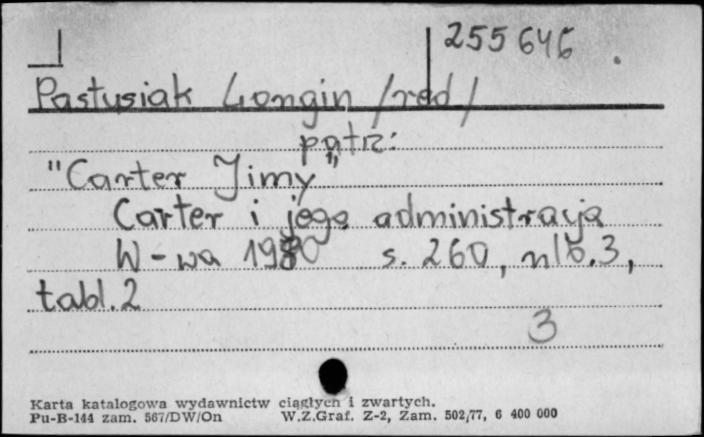 255 646
Pastusiak Longin /red/
patrz:
"Carter Jimy"
Carter i jego administracja
W-wa 1980 s. 260, nlb. 3,
tabl. 2
3
Karta katalogowa wydawnictw ciągłych i zwartych.
Pu-B-144 zam. 567/DW/On W.Z.Graf. Z-2, Zam. 502/77, 6 400 000